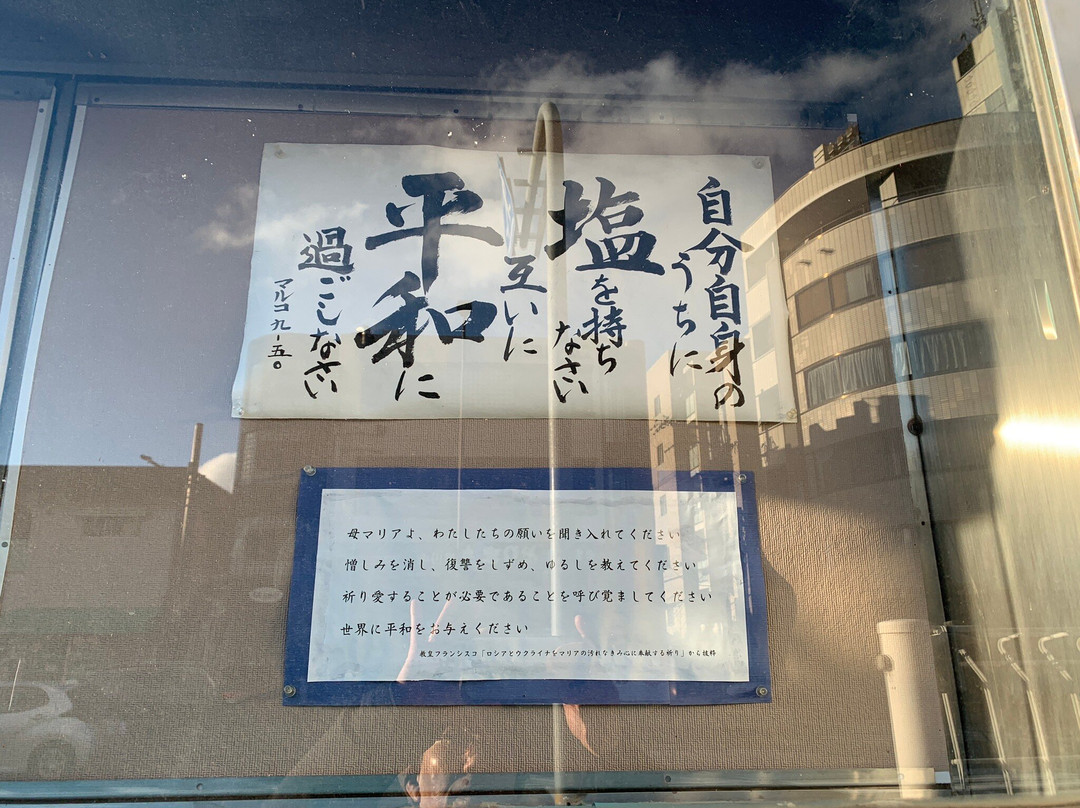 自分自身の
うちに
塩を持ち
なさい
互いに
平和に
過ごしなさい
マルコ九-五〇
母マリアよ、わたしたちの願いを聞き入れてください
憎しみを消し、復讐をしずめ、ゆるしを教えてください
祈り愛することが必要であることを呼び覚ましてください
世界に平和をお与えください
教皇フランシスコ「ロシアとウクライナをマリアの汚れなきみ心に奉献する祈り」から抜粋